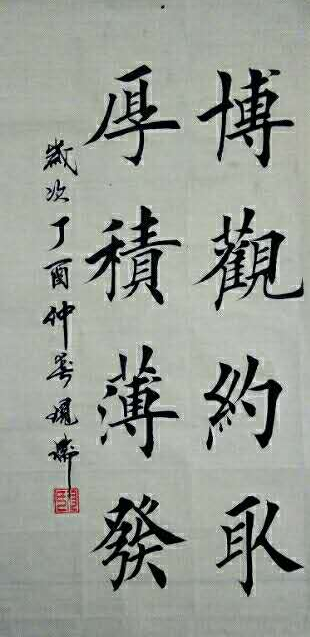 博觀約取
厚積薄發
歲次丁酉仲